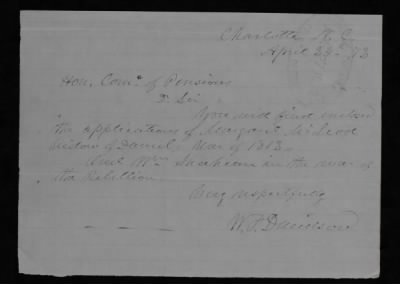 Charlotte N. C.
April 29th 73
Hon. Comr. of Pensions
Dr Sir
You will find inclosed
the applications of Margaret McLeod
widow of Daniel, War of 1812.
And Wm in the war of
the Rebellion
Very respectfully
W. F. Davidson